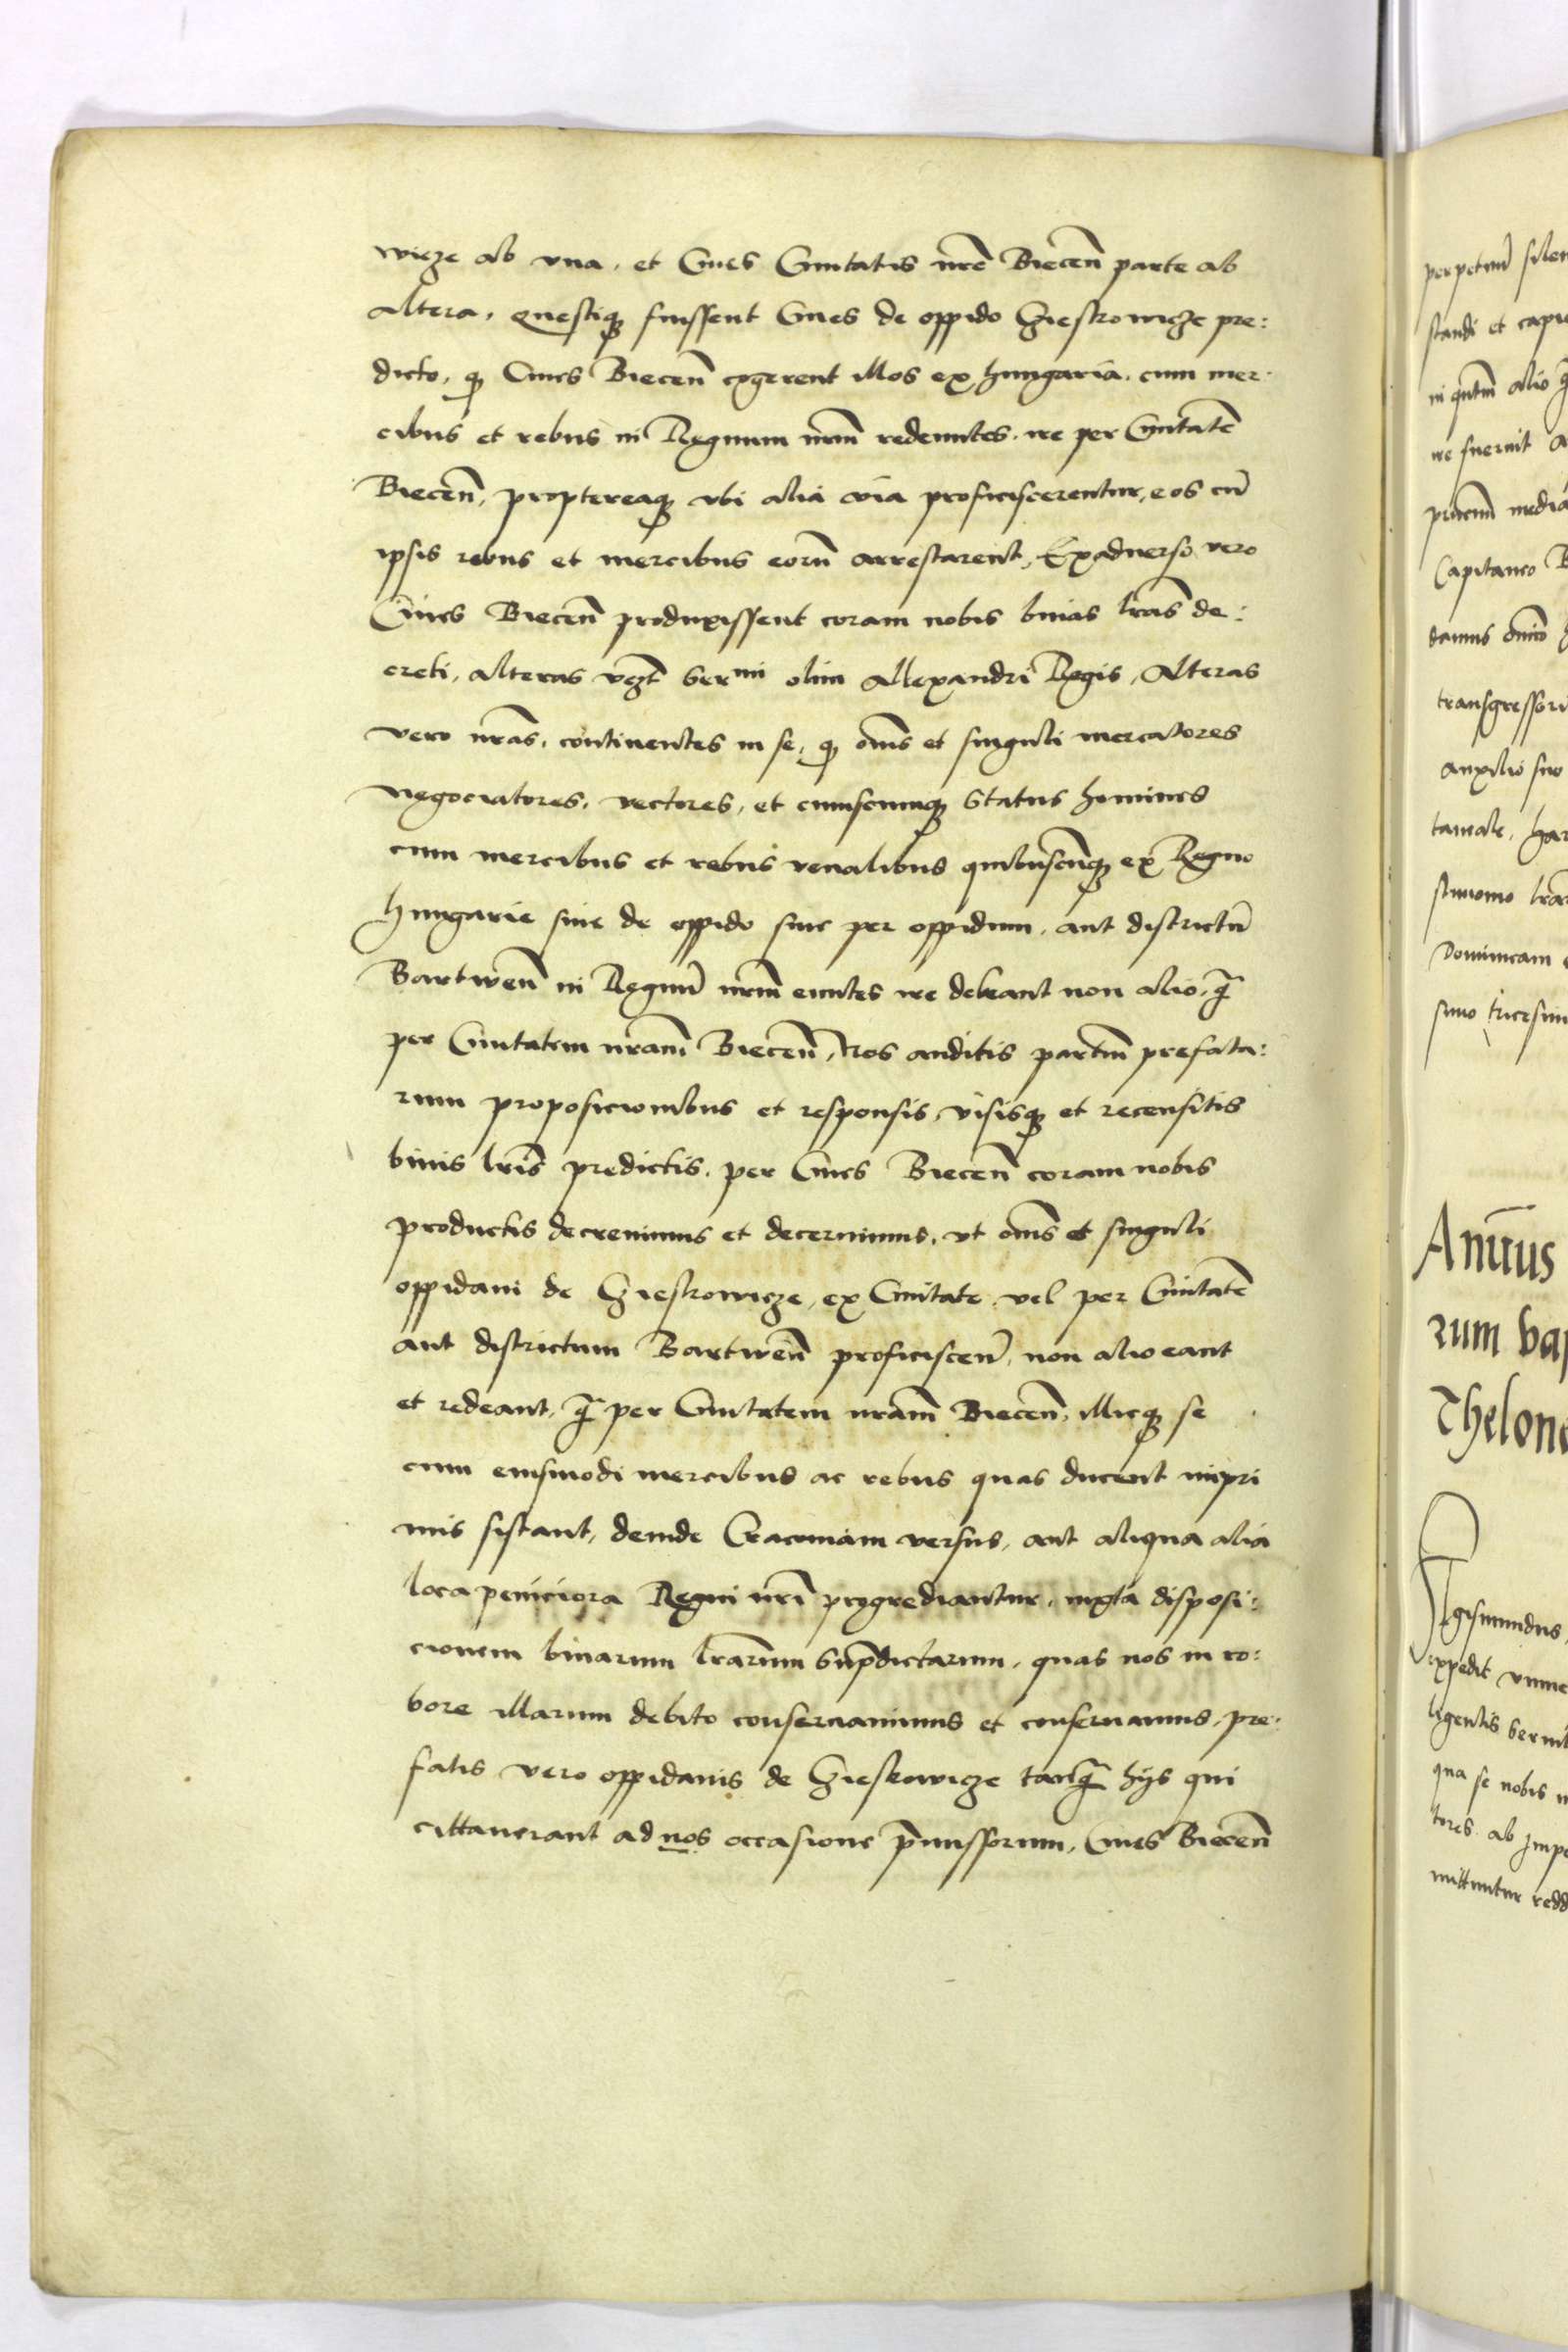 wicze ab vna, et Ciues Ciuitatis nr̃e Biecen̄ parte ab
altera, Questiq₃ fuissent Ciues de oppido Cziesskowicze pre:
dicto, q₃ Ciues Biecen̄ cogerent illos ex hungaria, cum mer:
cibus et rebus in Regnum nr̃m redeuntes, ire per Ciuitatē
Biecen̄, proptereaq₃ vbi alia via proficiscerentur, eos cū
ipsis rebus et mercibus eorū arrestarent, Exaduerso vero
Ciues Biecen̄ produxissent coram nobis binas lr̃as de:
creti, alteras vz̃t Ser^mi olim Allexandri Regis, Alteras
vero nr̃as, continentes in se, q₃ om̄s et singuli mercatores
negociatores, vectores, et cuiuscumq₃ Status homines
cum mercibus et rebus venalibus quibuscūq₃ ex Regno
hungarie siue de oppido siue per oppidum, aut districtū
Bartwen̄ in Regnū nr̃m euntes ire debeant non alio, q̃
per Ciuitatem nr̃am Biecen̄, Nos auditis partiū prefata:
rum proposicionibus et responsis, visisq₃ et recensitis
binis lr̃is predictis, per Ciues Biecen̄ coram nobis
productis decreuimus et decernimus, vt om̄s et singuli
oppidani de Czieskowicze, ex Ciuitate vel per Ciuitatē
aut districtum Bartwen̄ proficiscen̄, non alio eant
et redeant, q̃ per Ciuitatem nr̃am Biecen̄, illicq₃ se
cum eiusmodi mercibus ac rebus quas ducent inpri
mis sistant, deinde Cracouiam versus, aut aliqua alia
loca peniciora Regni nr̃i progrediantur, iuxta disposi:
cionem binarum lr̃arum Sup̃dictarum, quas nos in ro:
bore illarum debito conseruauimus et conseruamus, pre:
fatis vero oppidanis de Czieskowicze tanq̃ hijs qui
cittauerant ad nos occasione p̃missorum, Ciues Biecen̄
perpetuū silen
standi et capie
in q̃ntum alio q̃
ire fuerint a
Capitaneo B
transgressori
auxilio suo
Dominicam
simo tricesim
Anuus
rum va
Thelone
Sigismundus,
expedit
qua se nobis
tores ab Impe
mittuntur redd